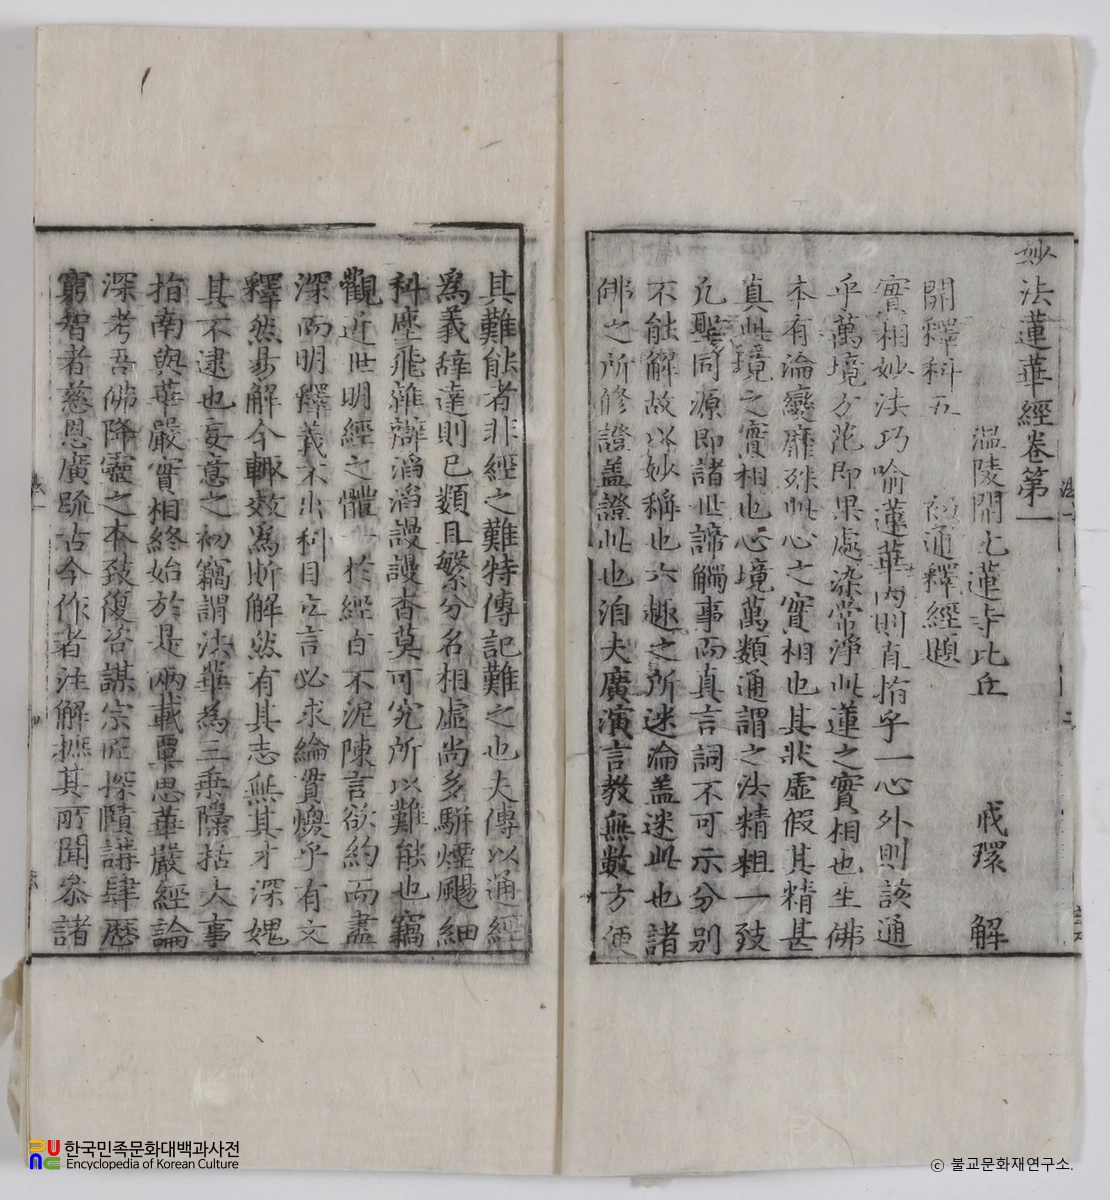 妙法蓮華經卷第一
溫陵開元蓮寺比丘 戒環 解
開釋科五 初通釋經題
實相妙法巧喻蓮華內則直指乎一心外則該通
乎萬境方花即果處染常淨此蓮之實相也生佛
本有淪變靡殊此心之實相也其狀虛假其精甚
真此境之實相也心境萬類通謂之法精粗一致
凡聖同源即諸世諦觸事而真言詞不可示分別
不能解故以妙稱也六趣之所迷淪盖迷此也諸
佛之所修證盖證此也洎夫廣演言教無數方便
其難能者非經之難特傳記難之也夫傳以通經
爲義辭達則已類且繁分名相虛尚多駢煙颺細
科塵飛雜辯滔滔謾謾杳莫可究所以難能也竊
觀近世明經之體 於經自不泥陳言欲約而盡
深而明釋義不出科目立言必求綸貫煥乎有文
釋然易解今輒效爲斯解然有其志無其才深媿
其不逮也妄意之初竊謂法華爲三乘隱括大事
指南與華嚴實相終始於是兩載覃思華嚴經論
深考吾佛降靈之本致復咨謀宗匠探賾講肆歷
窮智者慈恩廣䟽古今作者注解摭其所聞叅諸
法一
한국민족문화대백과사전
Encyclopedia of Korean Culture
© 불교문화재연구소.